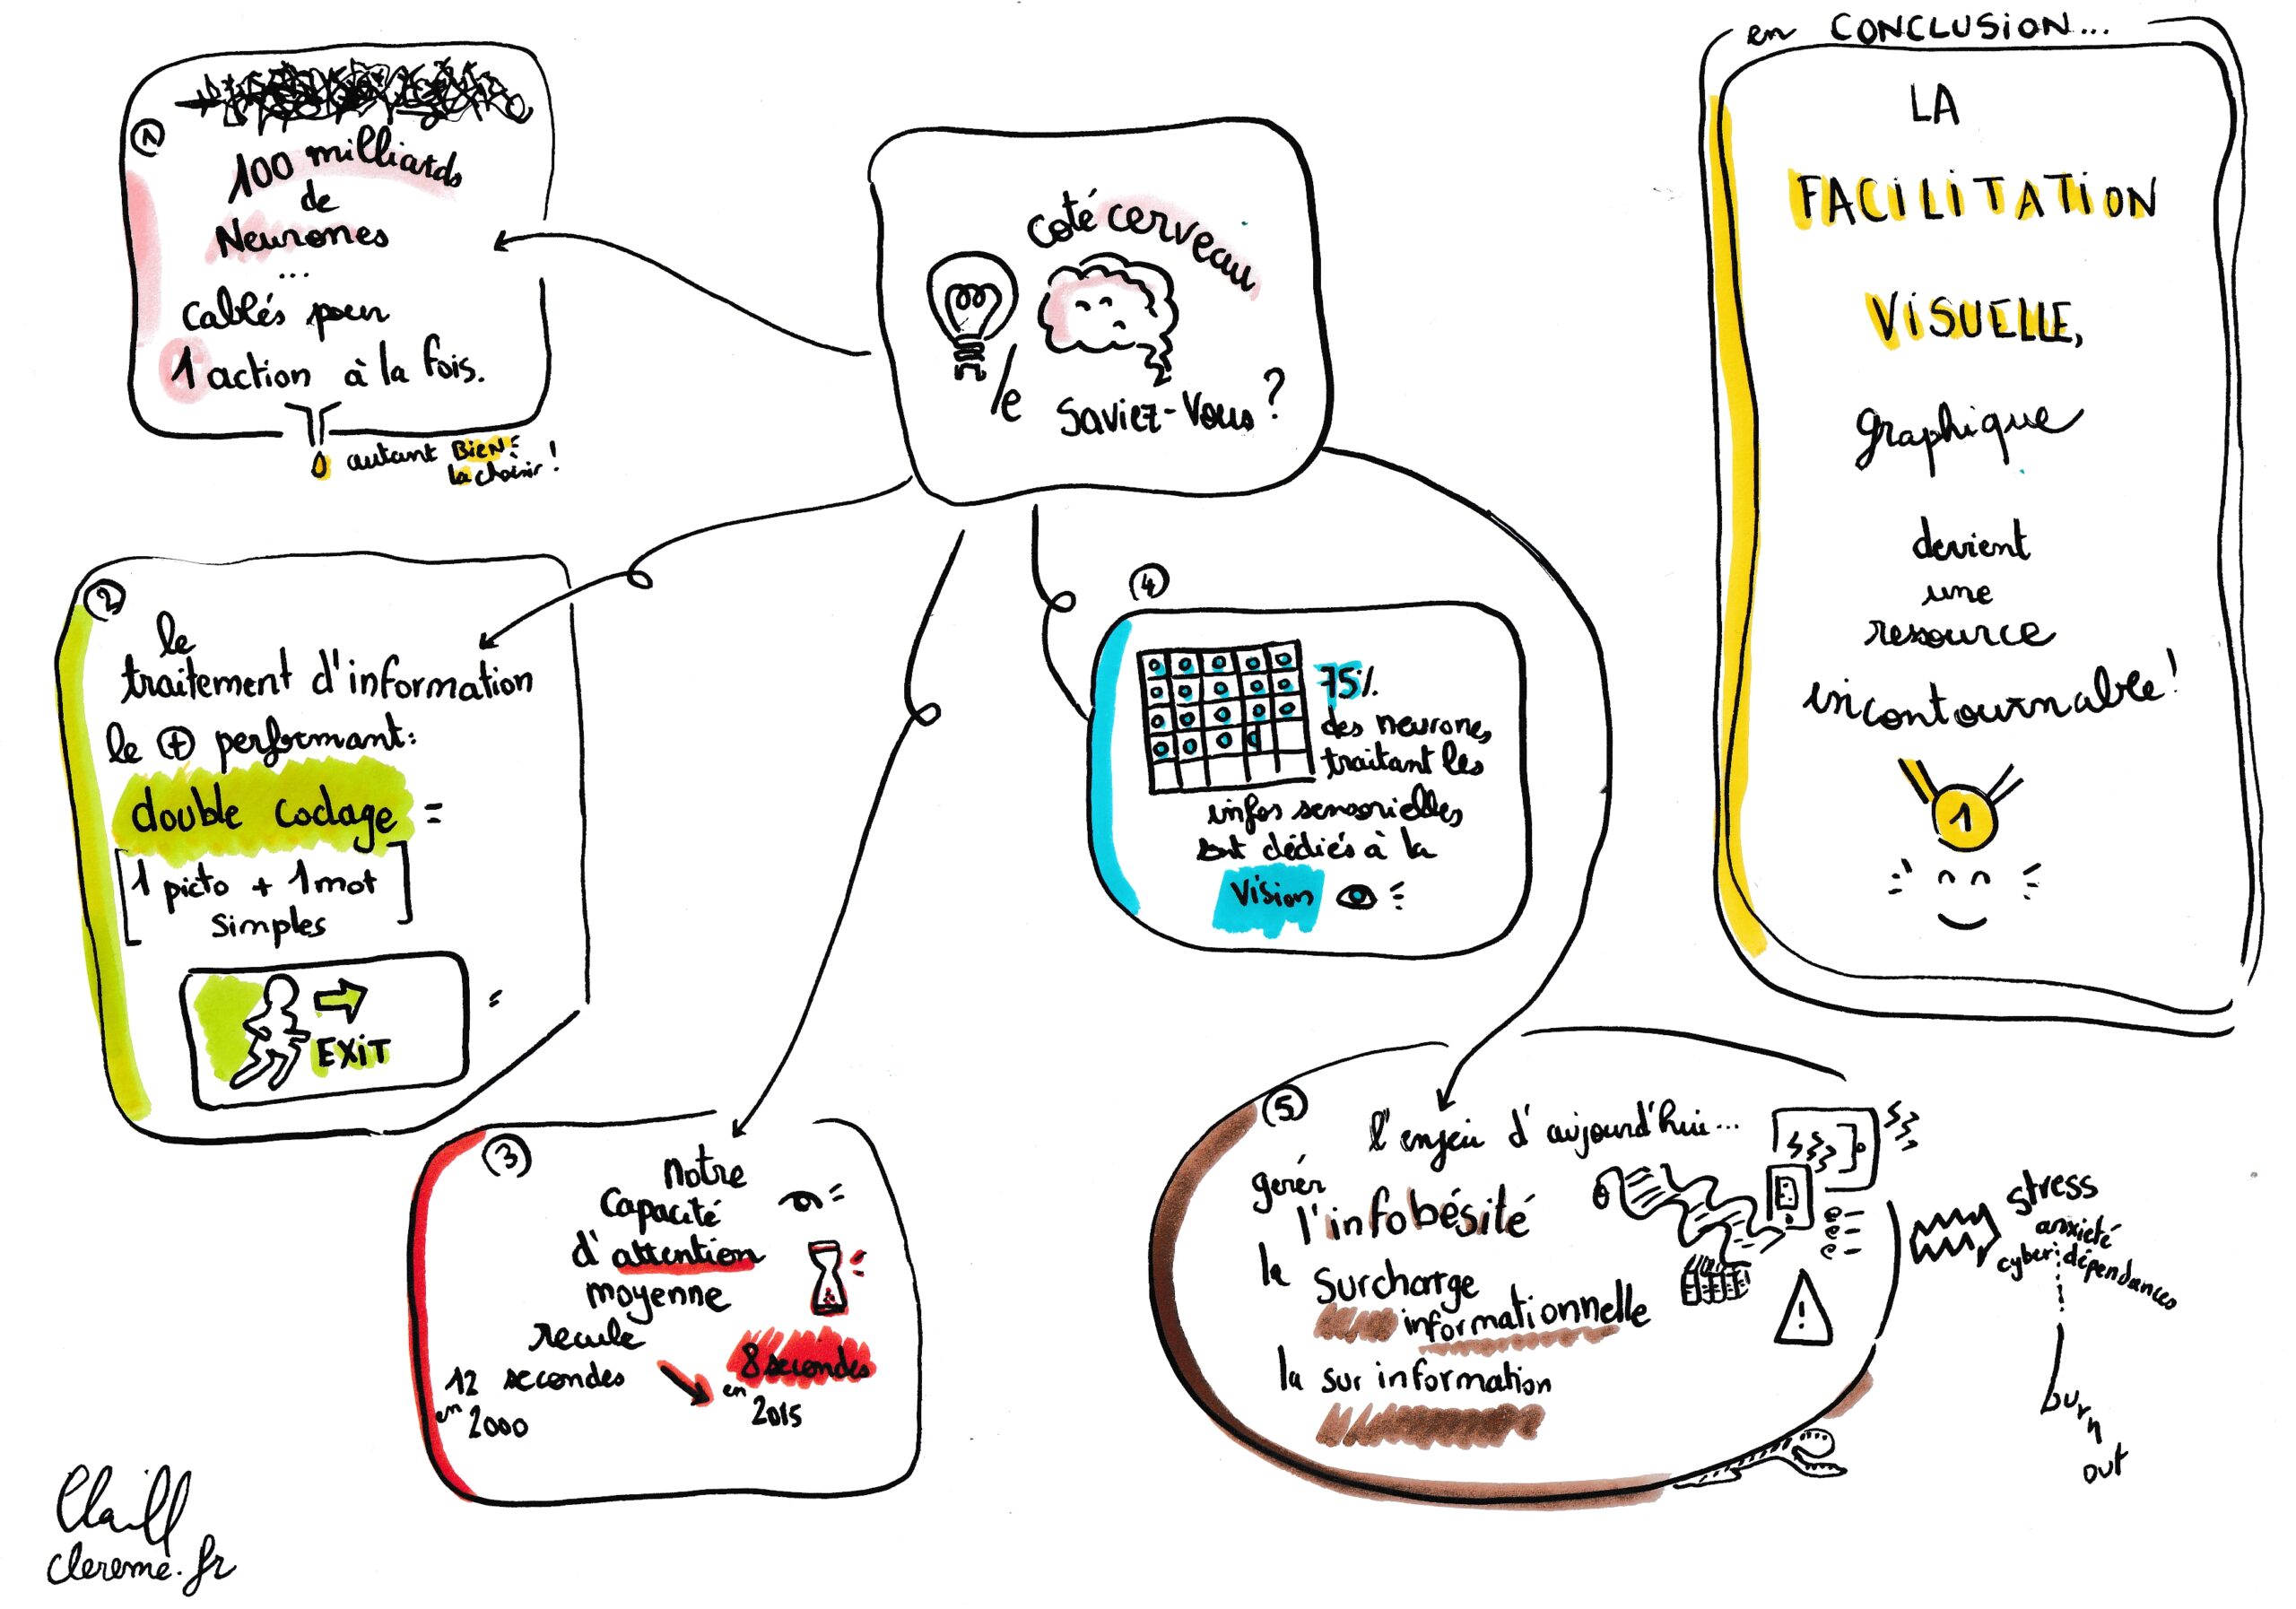 coté cerveau
le
saviez-vous ?
1
100 milliards
de
Neurones
...
cablés pour
1 action à la fois.
autant BiEN
la choisir !
2
le
traitement d'information
le + performant:
double codage =
[1 picto + 1 mot
simples]
EXiT
=
3
Notre
capacité
d'attention
moyenne
recule
12 secondes
en 2000
8 secondes
en 2015
4
75%
des neurones
traitant les
infos sensorielles
sont dédiés à la
Vision
5
l'enjeu d'aujourd'hui...
gerér
l'infobésité
la surcharge
informationnelle
la sur information
!
stress
anxieté
cyberdépendances
burn
out
en CONCLUSiON...
LA
FACiLiTATiON
ViSUELLE,
graphique
devient
une
resource
incontournable!
1
clereme.fr